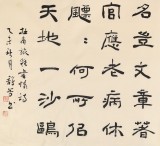 名豈文章著
官應老病休
飄〻何所似
天地一沙鷗
杜甫旅夜書懷詩
乙未月